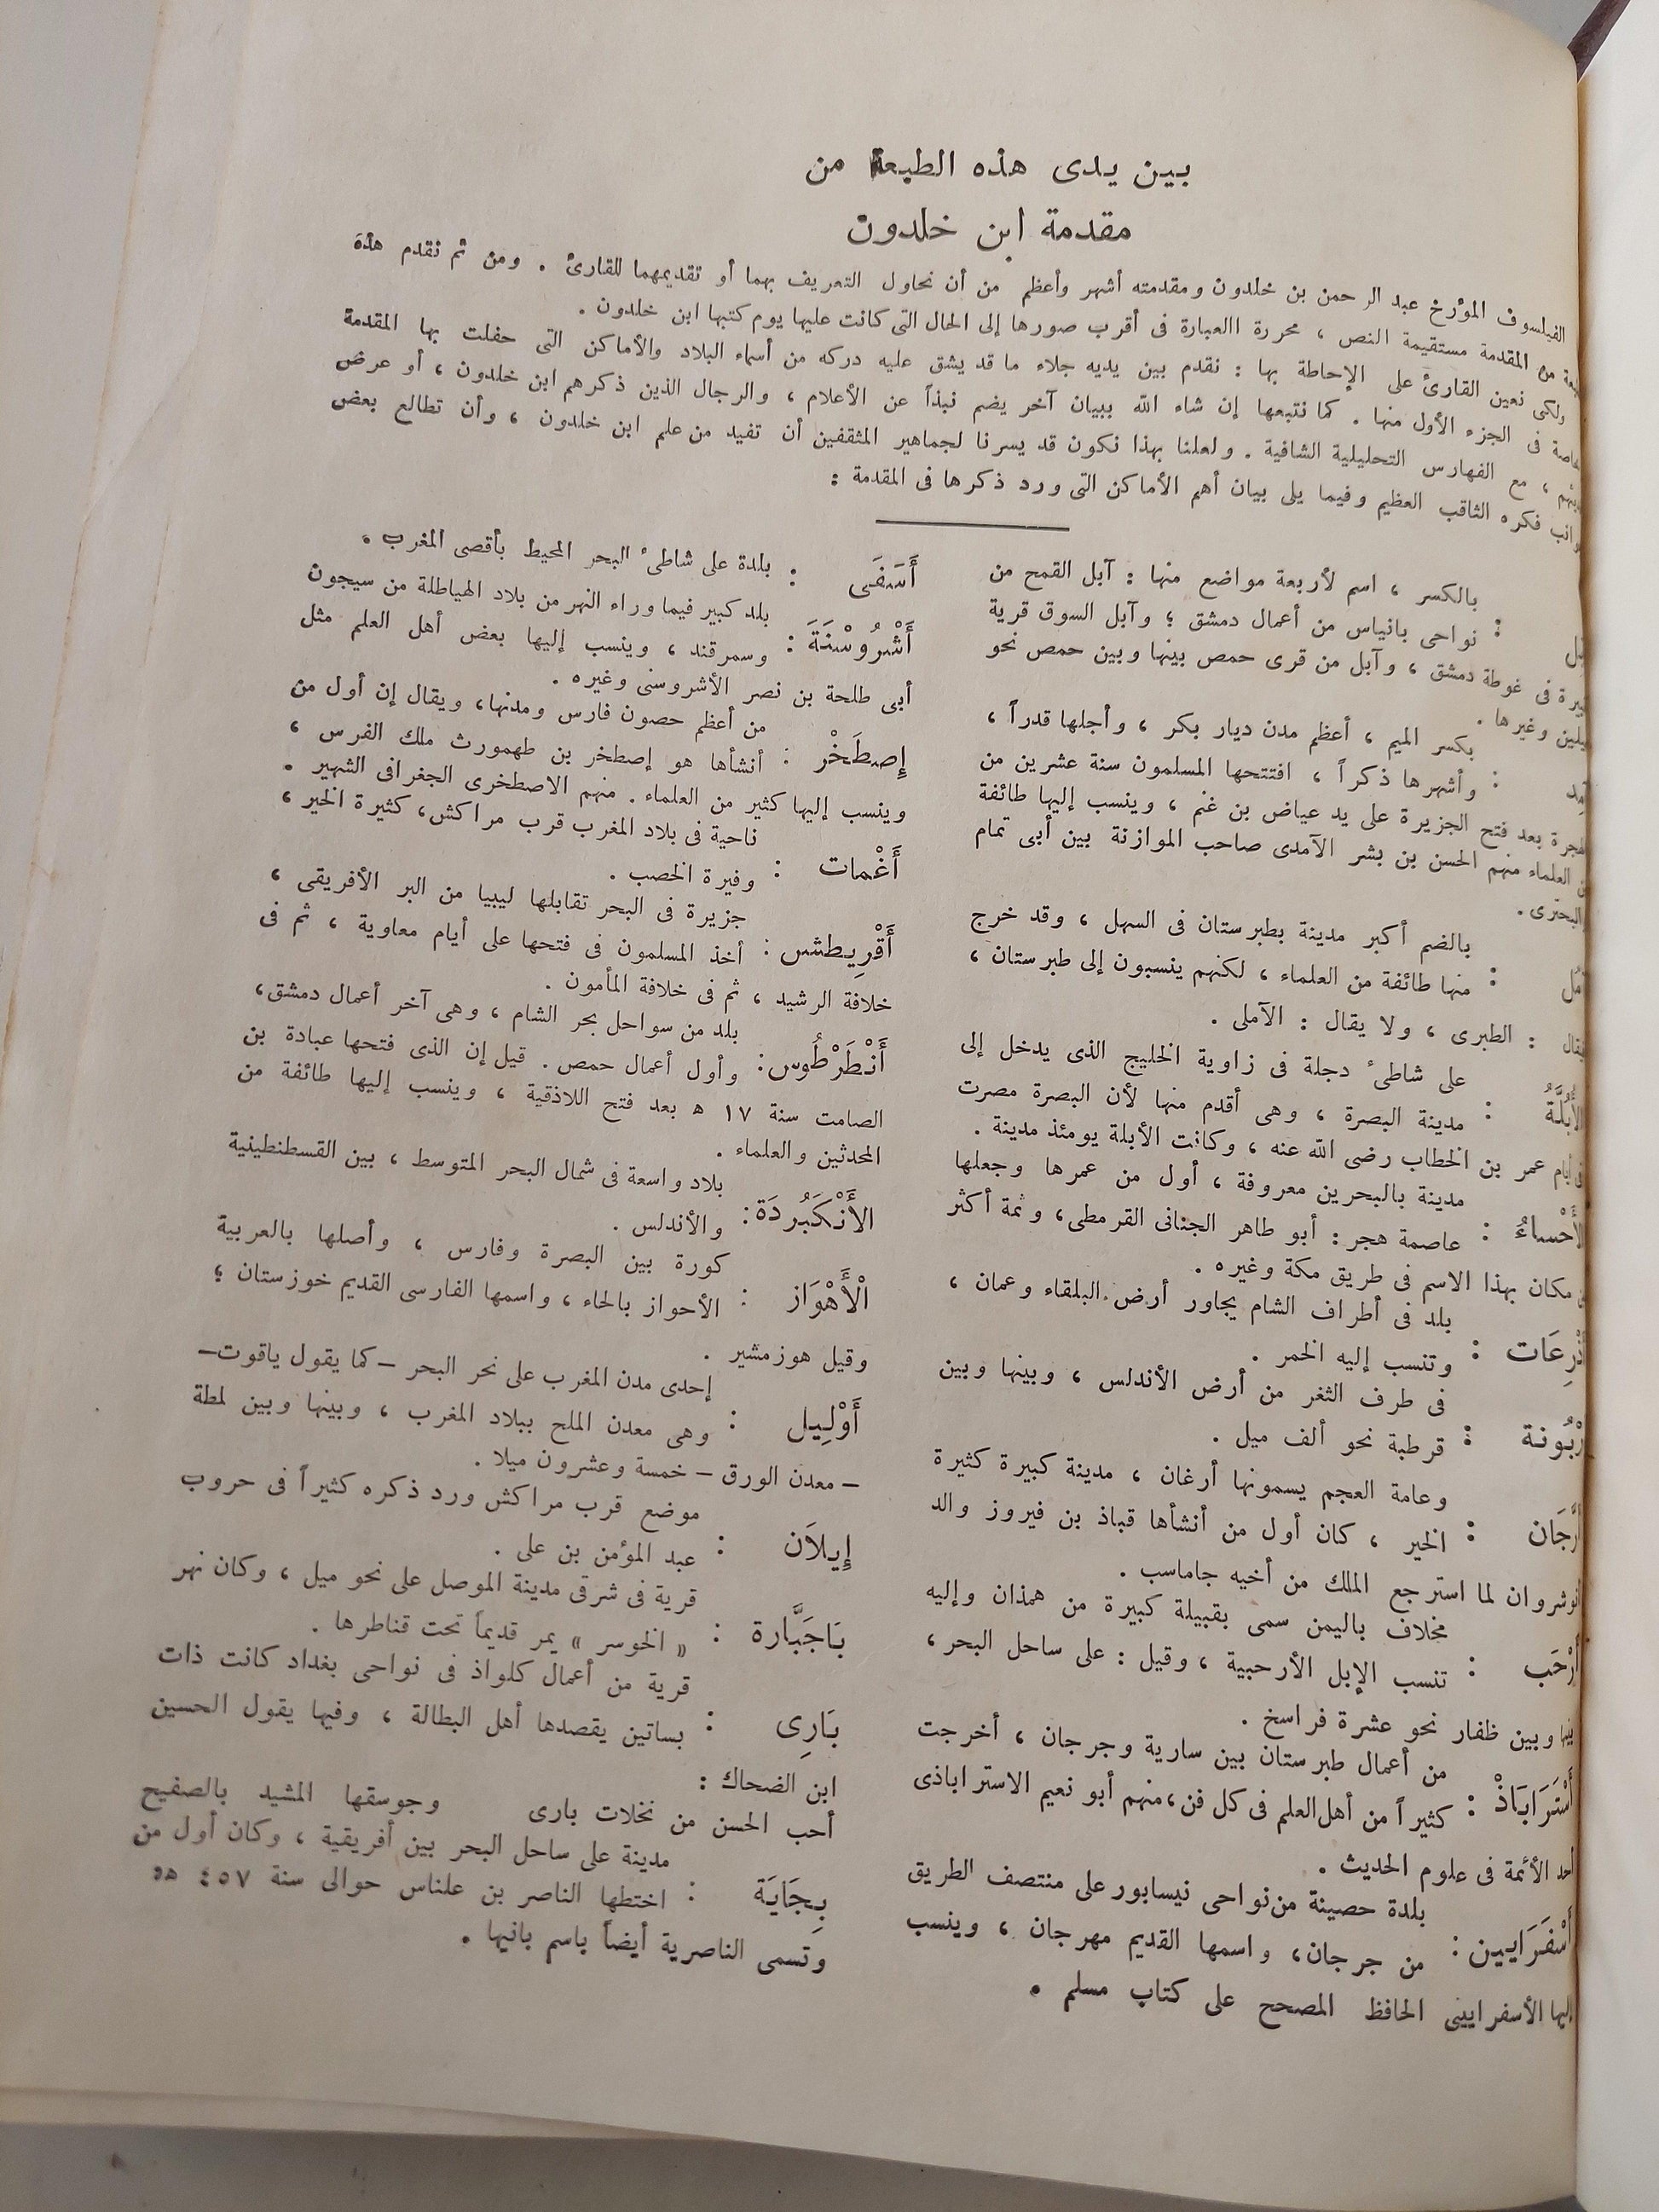 بين يدى هذه الطبعة من
مقدمة ابن خلدون
الفيلسوف المؤرخ عبد الرحمن بن خلدون ومقدمته أشهر وأعظم من أن نحاول التعريف بهما أو تقديمهما للقارئ . ومن ثم نقدم هذه
من المقدمة مستقيمة النص ، محررة االعبارة فى أقرب صورها إلى الحال التى كانت عليها يوم كتبها ابن خلدون .
ولكى نعين القارئ على الإحاطة بها : نقدم بين يديه جلاء ما قد يشق عليه دركه من أسماء البلاد والأماكن التى حفلت بها المقدمة
فى الجزء الأول منها . كما نتبعها إن شاء الله ببيان آخر يضم نبذاً عن الأعلام ، والرجال الذين ذكرهم ابن خلدون ، أو عرض
، مع الفهارس التحليلية الشافية . ولعلنا بهذا نكون قد يسرنا لجماهير المثقفين أن تفيد من علم ابن خلدون ، وأن تطالع بعض
فكره الثاقب العظيم وفيما يلى بيان أهم الأماكن التى ورد ذكرها فى المقدمة :
: بالكسر ، اسم لأربعة مواضع منها : آبل القمح من
نواحى بانياس من أعمال دمشق ؛ وآبل السوق قرية
فى غوطة دمشق ، وآبل من قرى حمص بينها وبين حمص نحو
وغيرها .
: بكسر الميم ، أعظم مدن ديار بكر ، وأجلها قدراً ،
وأشهرها ذكراً ، افتتحها المسلمون سنة عشرين من
بعد فتح الجزيرة على يد عياض بن غنم ، وينسب إليها طائفة
العلماء منهم الحسن بن بشر الآمدى صاحب الموازنة بين أبى تمام
والبحترى .
: بالضم أكبر مدينة بطبرستان فى السهل ، وقد خرج
منها طائفة من العلماء ، لكنهم ينسبون إلى طبرستان ،
: الطبرى ، ولا يقال : الآملى .
الأُبُلَّةُ : على شاطئ دجلة فى زاوية الخليج الذى يدخل إلى
مدينة البصرة ، وهى أقدم منها لأن البصرة مصرت
أيام عمر بن الخطاب رضى الله عنه ، وكانت الأبلة يومئذ مدينة .
الأَحْساءُ : مدينة بالبحرين معروفة ، أول من عمرها وجعلها
عاصمة هجر : أبو طاهر الجنانى القرمطى ، وثمة أكثر
مكان بهذا الاسم فى طريق مكة وغيره .
أَذْرِعَات : بلد فى أطراف الشام يجاور أرض البلقاء وعمان ،
وتنسب إليه الخمر .
أَرْبُونة : فى طرف الثغر من أرض الأندلس ، وبينها وبين
قرطبة نحو ألف ميل .
أَرَّجَان : وعامة العجم يسمونها أرغان ، مدينة كبيرة كثيرة
الخير ، كان أول من أنشأها قباذ بن فيروز والد
أنوشروان لما استرجع الملك من أخيه جاماسب .
أَرْحَب : مخلاف باليمن سمى بقبيلة كبيرة من همذان وإليه
تنسب الإبل الأرحبية ، وقيل : على ساحل البحر ،
بينها وبين ظفار نحو عشرة فراسخ .
أَسْتَرَابَاذْ : من أعمال طبرستان بين سارية وجرجان ، أخرجت
كثيراً من أهل العلم فى كل فن ، منهم أبو نعيم الاستراباذى
أحد الأئمة فى علوم الحديث .
أَسْفَرَايين : بلدة حصينة من نواحى نيسابور على منتصف الطريق
من جرجان ، واسمها القديم مهرجان ، وينسب
إليها الأسفرايينى الحافظ المصحح على كتاب مسلم .
أَسَفَى : بلدة على شاطئ البحر المحيط بأقصى المغرب .
أَشْرُوسْنَةَ : بلد كبير فيما وراء النهر من بلاد الهياطلة من سيجون
وسمرقند ، وينسب إليها بعض أهل العلم مثل
أبى طلحة بن نصر الأشروسنى وغيره .
إِصطَخْر : من أعظم حصون فارس ومدنها ، ويقال إن أول من
أنشأها هو إصطخر بن طهمورث ملك الفرس ،
وينسب إليها كثير من العلماء . منهم الاصطخرى الجغرافى الشهير .
أَغْمات : ناحية فى بلاد المغرب قرب مراكش ، كثيرة الخير ،
وفيرة الخصب .
أَقْرِيطش : جزيرة فى البحر تقابلها ليبيا من البر الأفريقى ،
أخذ المسلمون فى فتحها على أيام معاوية ، ثم فى
خلافة الرشيد ، ثم فى خلافة المأمون .
أَنْطَرْطُوس : بلد من سواحل بحر الشام ، وهى آخر أعمال دمشق ،
وأول أعمال حمص . قيل إن الذى فتحها عبادة بن
الصامت سنة ١٧ ه بعد فتح اللاذقية ، وينسب إليها طائفة من
المحدثين والعلماء .
الأَنْكَبُردَة : بلاد واسعة فى شمال البحر المتوسط ، بين القسطنطينية
والأندلس .
الْأَهْوَاز : كورة بين البصرة وفارس ، وأصلها بالعربية
الأحواز بالحاء ، واسمها الفارسى القديم خوزستان ؛
وقيل هوزمشير .
أَوْلِيل : إحدى مدن المغرب على نحر البحر – كما يقول ياقوت –
وهى معدن الملح ببلاد المغرب ، وبينها وبين لمطة
– معدن الورق – خمسة وعشرون ميلا .
إِيلاَن : موضع قرب مراكش ورد ذكره كثيراً فى حروب
عبد المؤمن بن على .
بَاجَبَّارة : قرية فى شرقى مدينة الموصل على نحو ميل ، وكان نهر
« الخوسر » يمر قديماً تحت قناطرها .
بَارِى : قرية من أعمال كلواذ فى نواحى بغداد كانت ذات
بساتين يقصدها أهل البطالة ، وفيها يقول الحسين
ابن الضحاك :
أحب الحسن من نخلات بارى وجوسقها المشيد بالصفيح
بِجَايَة : مدينة على ساحل البحر بين أفريقية ، وكان أول من
اختطها الناصر بن علناس حوالى سنة ٤٥٧ ه
وتسمى الناصرية أيضاً باسم بانيها .